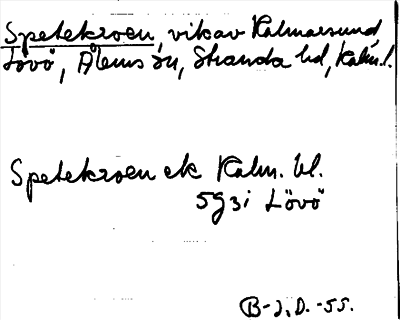 Spetekroen, vik av Kalmarsund,
Lövö, Ålems sn, Stranda hd, Kalm. l.
Spetekroen ek Kalm. bl.
5g3i Lövö
B-J. D. -55.